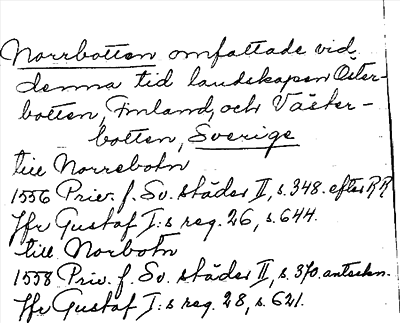 Norrbotten omfattade vid
denna tid landskapen Öster-
botten, Finland, och Väster-
botten, Sverige
till Norrebotn
1556 Priv. f. Sv. städer II, s. 348. efter RR
Jfr Gustaf I:s reg. 26, s. 644.
till Norbotn
1558 Priv. f. Sv. städer II, s. 370. anteckn.
Jfr Gustaf I:s reg. 28, s. 621.